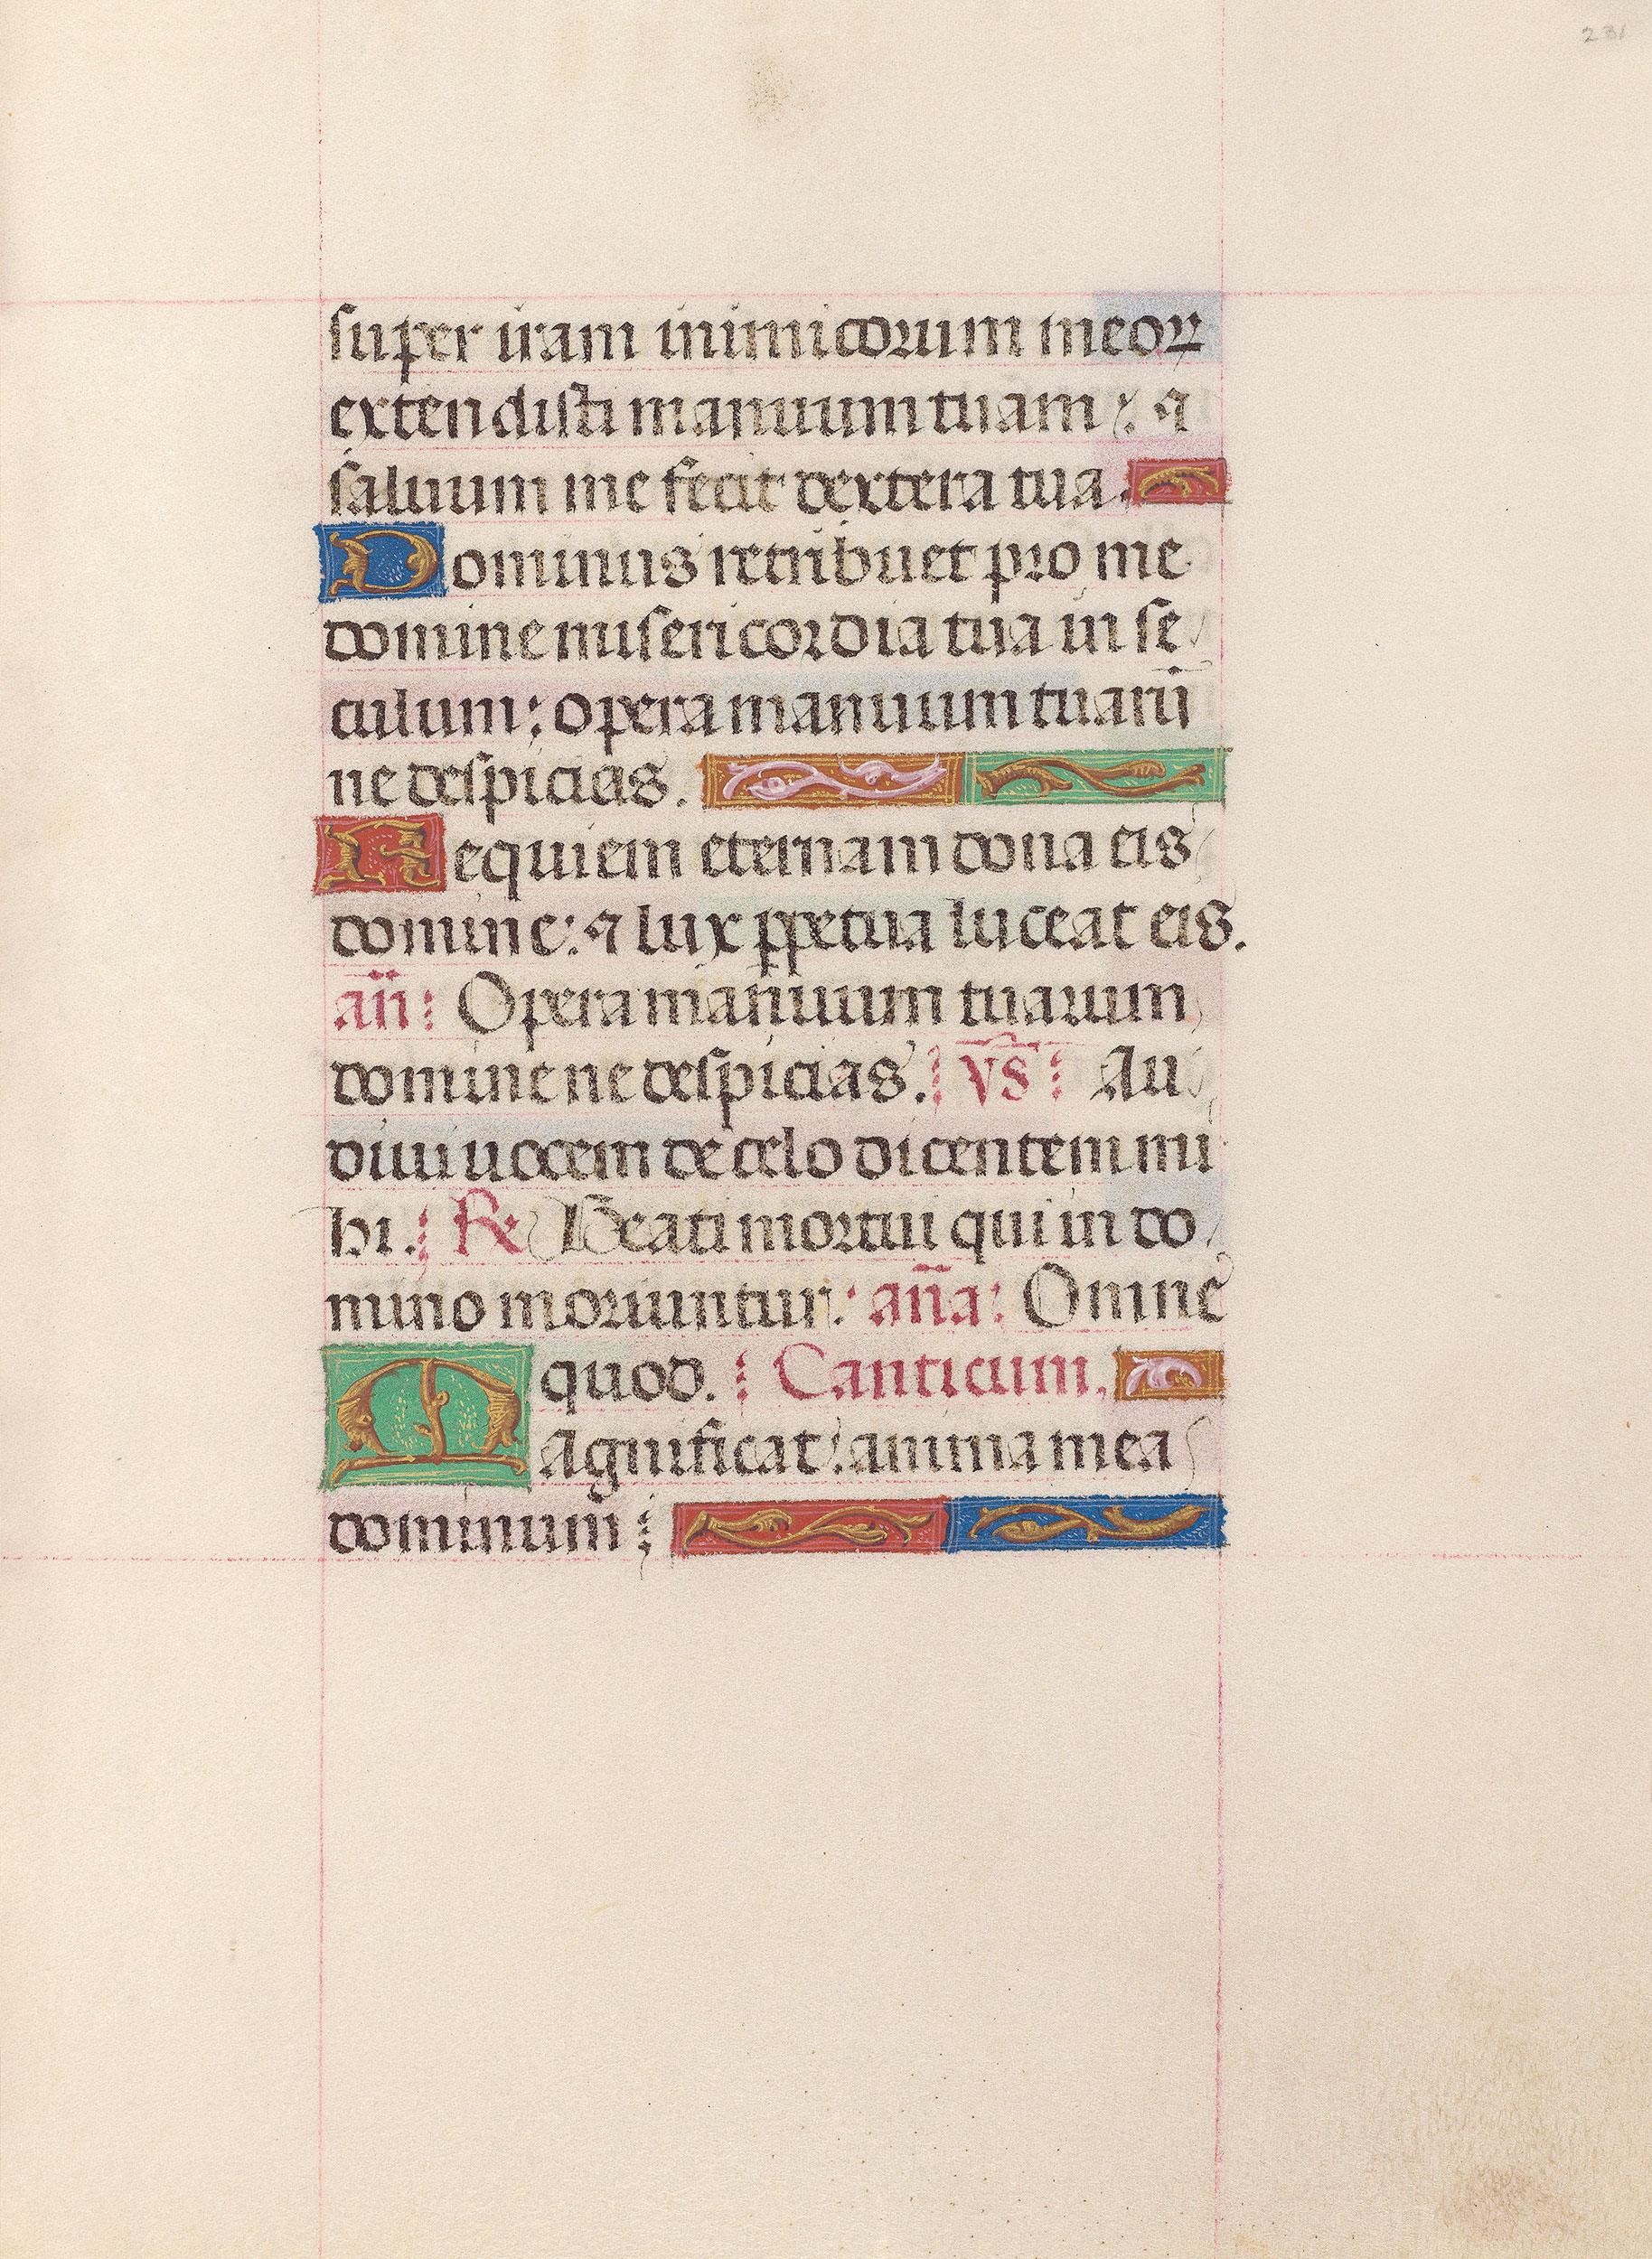 231
super iram inimicorum meoꝝ
extendisti manuum tuam: ⁊
saluum me fecit dextera tua.
Dominus retribuet pro me
domine misericordia tua in se
culum: opera manuum tuarū
ne despicias.
Requiem eternam dona eis
domine: ⁊ lux ꝑpetua luceat eis.
añ: Opera manuum tuarum
domine ne despicias. vs̃: Au
diui uocem de celo dicentem mi
hi. ℟ Beati mortui qui in do
mino moriuntur. aña: Omne
quod. Canticum.
Magnificat: anima mea
dominum: